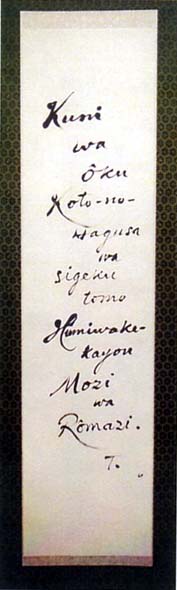 Kuni
wa
ôku
Koto-no-
hagusa
wa
sigeku
tomo
Humiwake-
kayou
Mozi
wa
Rômazi.
T.